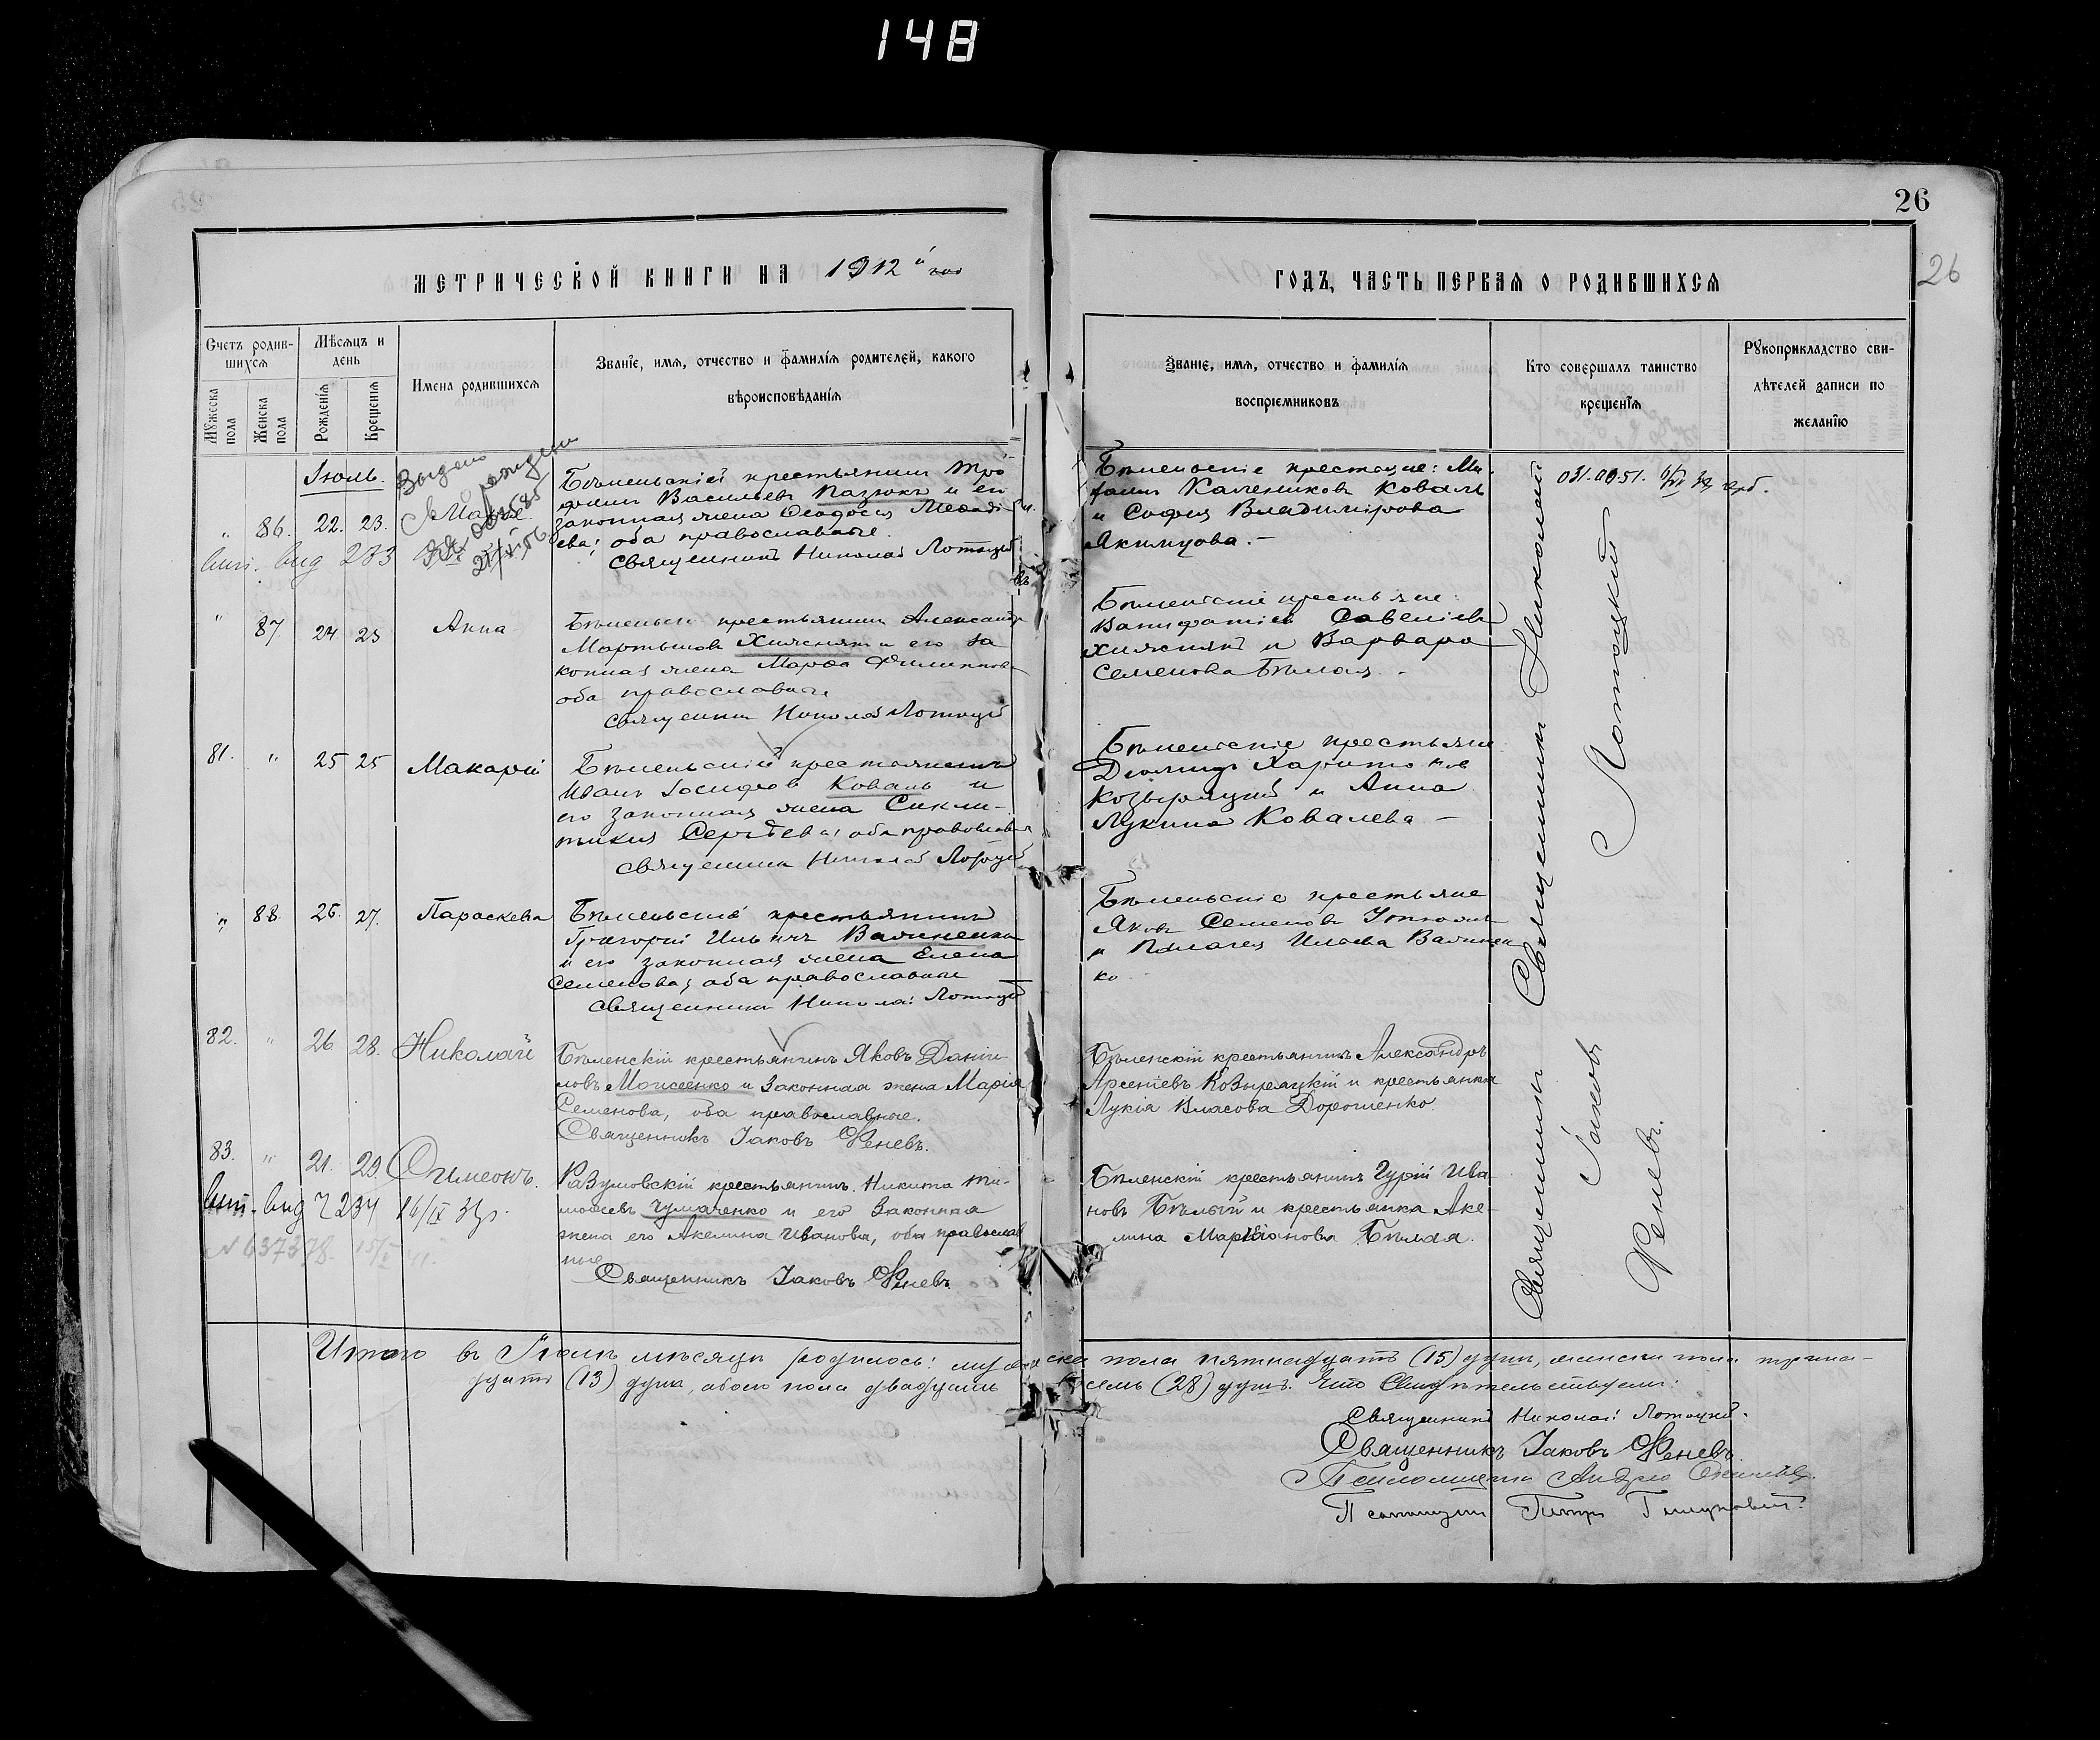 148
26
26
МЕТРИЧЕСКОЙ КНИГИ НА 1912й год
ГОДЪ, ЧАСТЬ ПЕРВАЯ О РОДИВШИХСЯ
Счетъ родив-
шихся
Мужеска пола
Женска пола
Мѣсяцъ и
день
Рожденія
Крещенія
Имена родившихся
Званіе, имя, отчество и фамилія родителей, какого
вѣроисповѣданія
Званіе, имя, отчество и фамилія
воспріемниковъ
Кто совершалъ таинство
крещенія
Рукоприкладство сви-
дѣтелей записи по
желанію
Іюль.
" 86. 22. 23. Марія
273
Бѣленьскій крестьянинъ Тро-
фимъ Васильевъ Пазюкъ и его
законная жена Ѳеодосія
ева; оба православные.
Священникъ Николай Лотоцкій
Бѣленьскіе крестьяне: Ми-
Калениковъ Коваль
и Софія Владимірова
Якимцова. —
" 87 24 25 Анна
Бѣленьскій крестьянинъ Александръ
Мартыновъ Хижнякъ и его за
конная жена Марѳа Филиппова
оба православные
Священникъ Николай Лотоцкій
Бѣленьскіе крестьяне:
Вонифатій Савеліевъ
Хижнякъ и Варвара
Семенова Бѣлая. -
81. " 25 25 Макарій
Бѣленьскій крестьянинъ
Иванъ Іосифовъ Коваль и
его законная жена Сикли-
тикія Сергѣева; оба православн
Священникъ Николай Лотоцкій
Бѣленьскіе крестьяне
Діомидъ Харитоновъ
Козыряцкій и Анна
Лукина Ковалева —
" 88. 26. 27. Параскева
Бѣленьскій крестьянинъ
Григорій Ильинъ Важненко
и его законная жена Елена
Семенова; оба православные
Священникъ Николай Лотоцкій
Бѣленьскіе крестьяне
Яковъ Семеновъ
и Пелагея Ильева Важнен
ко
82. " 26. 28. Николай
Бѣленскій крестьянинъ Яковъ Даніи-
ловъ Моисеенко и законная жена Марія
Семенова, оба православные.
Священникъ Іаковъ Феневъ.
Бѣленскій крестьянинъ Александръ
Арсеніевъ Козыряцкій и крестьянка
Лукія Власова Дорошенко.
83. " 21. 29. Симеонъ.
7234 16/IX
№ 037378. 15/
Разумовскій крестьянинъ Никита Ти-
моѳеевъ Чумаченко и его законная
жена его Акелина Иванова, оба православ
ные
Священникъ Іаковъ Феневъ.
Бѣленскій крестьянинъ Гурій Ива-
новъ Бѣлый и крестьянка Аке-
лина Маркіанова Бѣлая.
Священникъ Николай
Лотоцкій
Священникъ Іаковъ
Феневъ.
Итого въ Іюлѣ мѣсяцѣ родилось: мужеска пола пятнадцать (15) душъ, женска пола трина-
дцать (13) душъ, обоего пола двадцать восемь (28) душъ. Что свидѣтельствуемъ:
Священникъ Николай Лотоцкій.
Священникъ Іаковъ Феневъ.
Псаломщикъ Андрей
Псаломщикъ Петръ